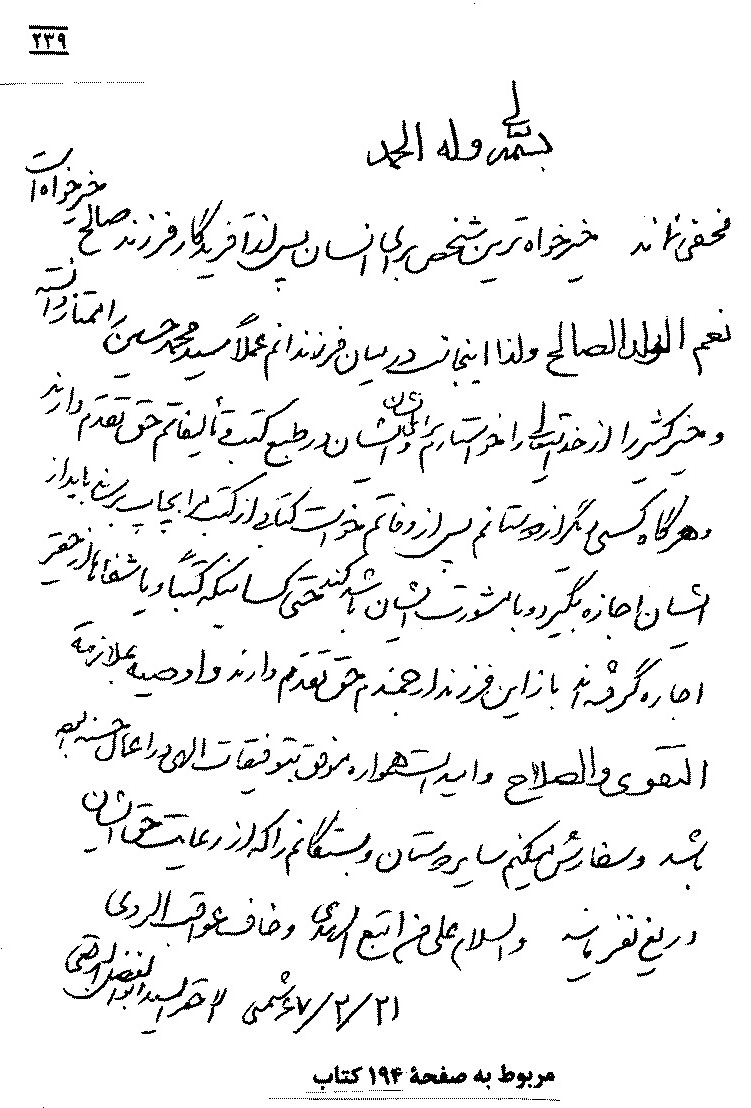 ۲۳۹
بسمه تعالی وله الحمد
مخفی نماند خیرخواه ترین شخص برای انسان پس از آفریدگار فرزند صالح خیرخواه است
نعم الولد الصالح ولذا اینجانب در میان فرزندانم عملاً سید محمد حسین را ممتاز دانسته
و خیر کثیر را از خدایتعالی خواستارم برای ایشان و ایشان در طبع کتب و تألیفاتم حق تقدم دارند
و هرگاه کسی دیگر از دوستانم پس از وفاتم خواست کتابی از کتب مرا بچاپ برساند باید از
ایشان اجازه بگیرد و با مشورت ایشان باشد حتی کسانیکه کتباً و یا شفاهاً از حقیر
اجازه گرفته اند باز این فرزند ارجمندم حق تقدم دارند و اوصیه بملازمة
التقوی والصلاح و امید است همواره موفق بتوفیقات الهی در اعمال حسنه
باشد و سفارش میکنم سایر دوستان و بستگانم را که از رعایت حق ایشان
دریغ نفرمایند والسلام علی من اتبع الهدی وخاف عواقب الردی
۶۷/۲/۲۱ شمسی الاحقر السید ابوالفضل البرقعی
مربوط به صفحهٔ ۱۹۴ کتاب